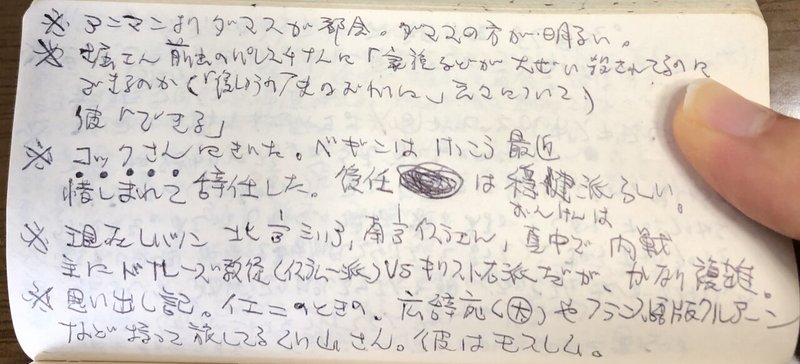 ※ アンマンよりダマスが都会。ダマスの方が明るい。
※ 堀さん 前出のパレスチナ人に「家族などが大ぜい殺されてるのに
できるのか(「
彼「できる」
※ コックさんにきいた。ベギンはけっこう最近
惜しまれて辞任した。後任 は穏健派らしい。
おんけんは
※ 現在レバノン 北部シリア, 南部イスラエル, 真中で内戦
主にドルーズ教徒(イスラム一派)VSキリスト右派だが、かなり複雑。
※ 思い出し記。イエニのときの、広辞苑(大)やフランス語版クルアーン
など持って旅してる 山さん。彼はモスレム。